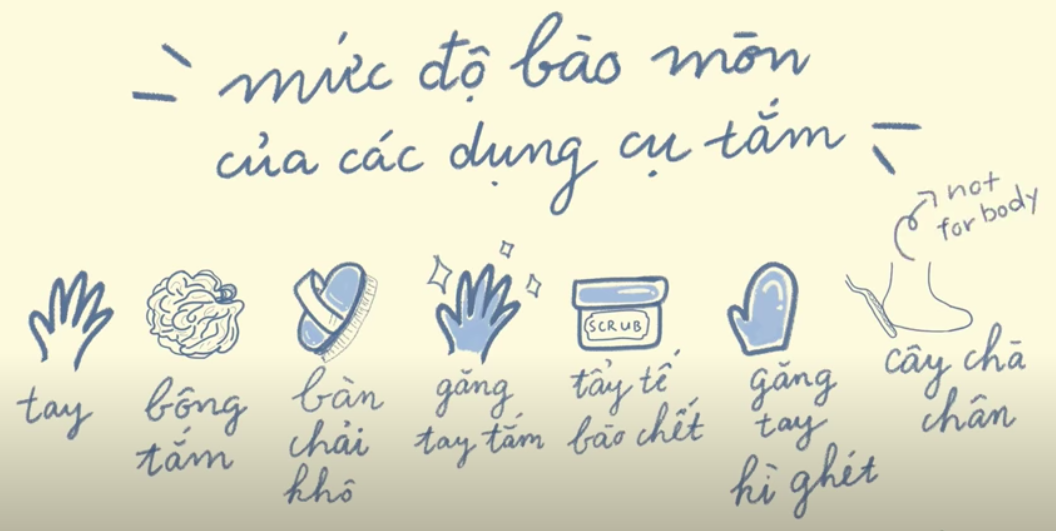 mức độ bào mòn
của các dụng cụ tắm
not
for body
SCRUB
tay
bông
tắm
bàn
chải
khô
găng
tay tắm
tẩy tế
bào chết
găng
tay
kì ghét
cây chà
chân